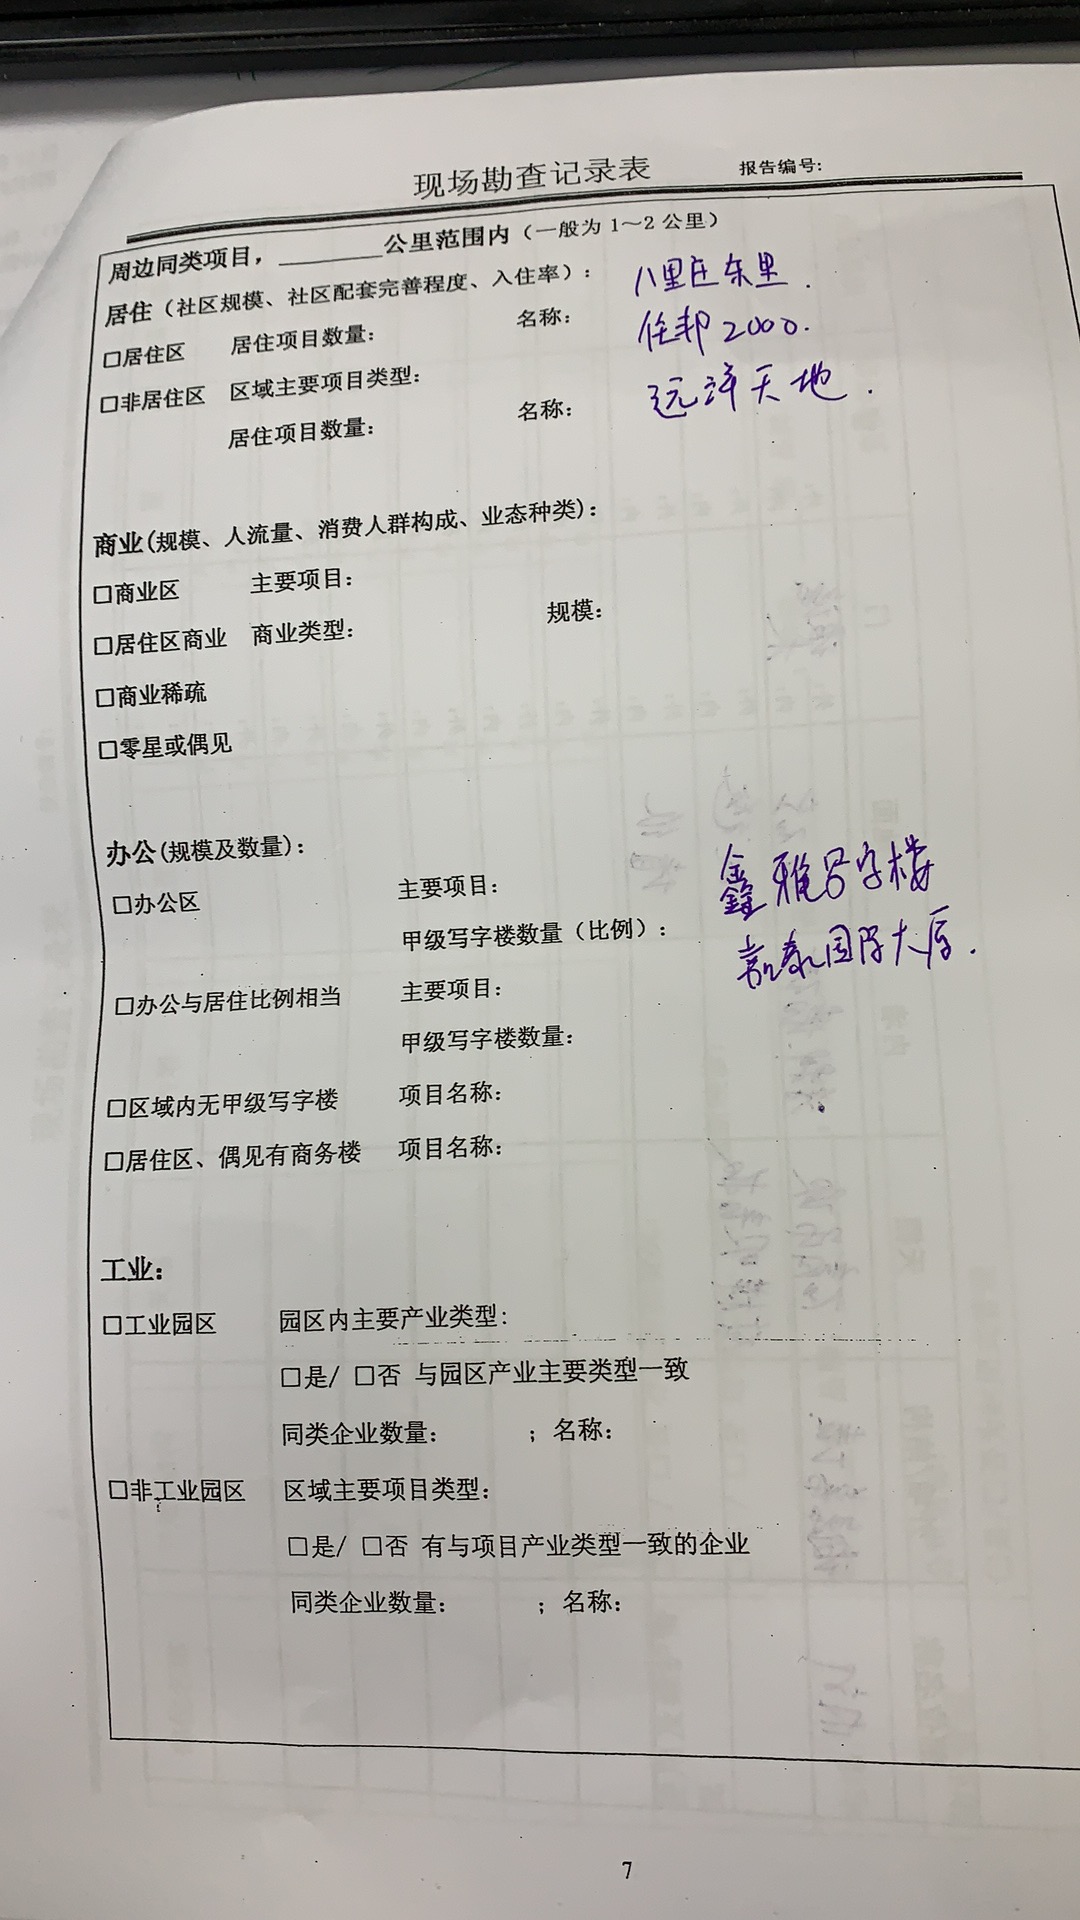 现场勘查记录表 报告编号:
周边同类项目，________公里范围内（一般为 1～2 公里）
居住（社区规模、社区配套完善程度、入住率）: 八里庄东里.
□居住区 居住项目数量: 名称: 住邦 2000.
□非居住区 区域主要项目类型: 远洋天地.
居住项目数量: 名称:
商业(规模、人流量、消费人群构成、业态种类):
□商业区 主要项目:
□居住区商业 商业类型: 规模:
□商业稀疏
□零星或偶见
办公(规模及数量):
□办公区 主要项目: 鑫雅写字楼
甲级写字楼数量（比例）: 嘉泰国际大厦.
□办公与居住比例相当 主要项目:
甲级写字楼数量:
□区域内无甲级写字楼 项目名称:
□居住区、偶见有商务楼 项目名称:
工业:
□工业园区 园区内主要产业类型:
□是/ □否 与园区产业主要类型一致
同类企业数量: ；名称:
□非工业园区 区域主要项目类型:
□是/ □否 有与项目产业类型一致的企业
同类企业数量: ；名称:
7